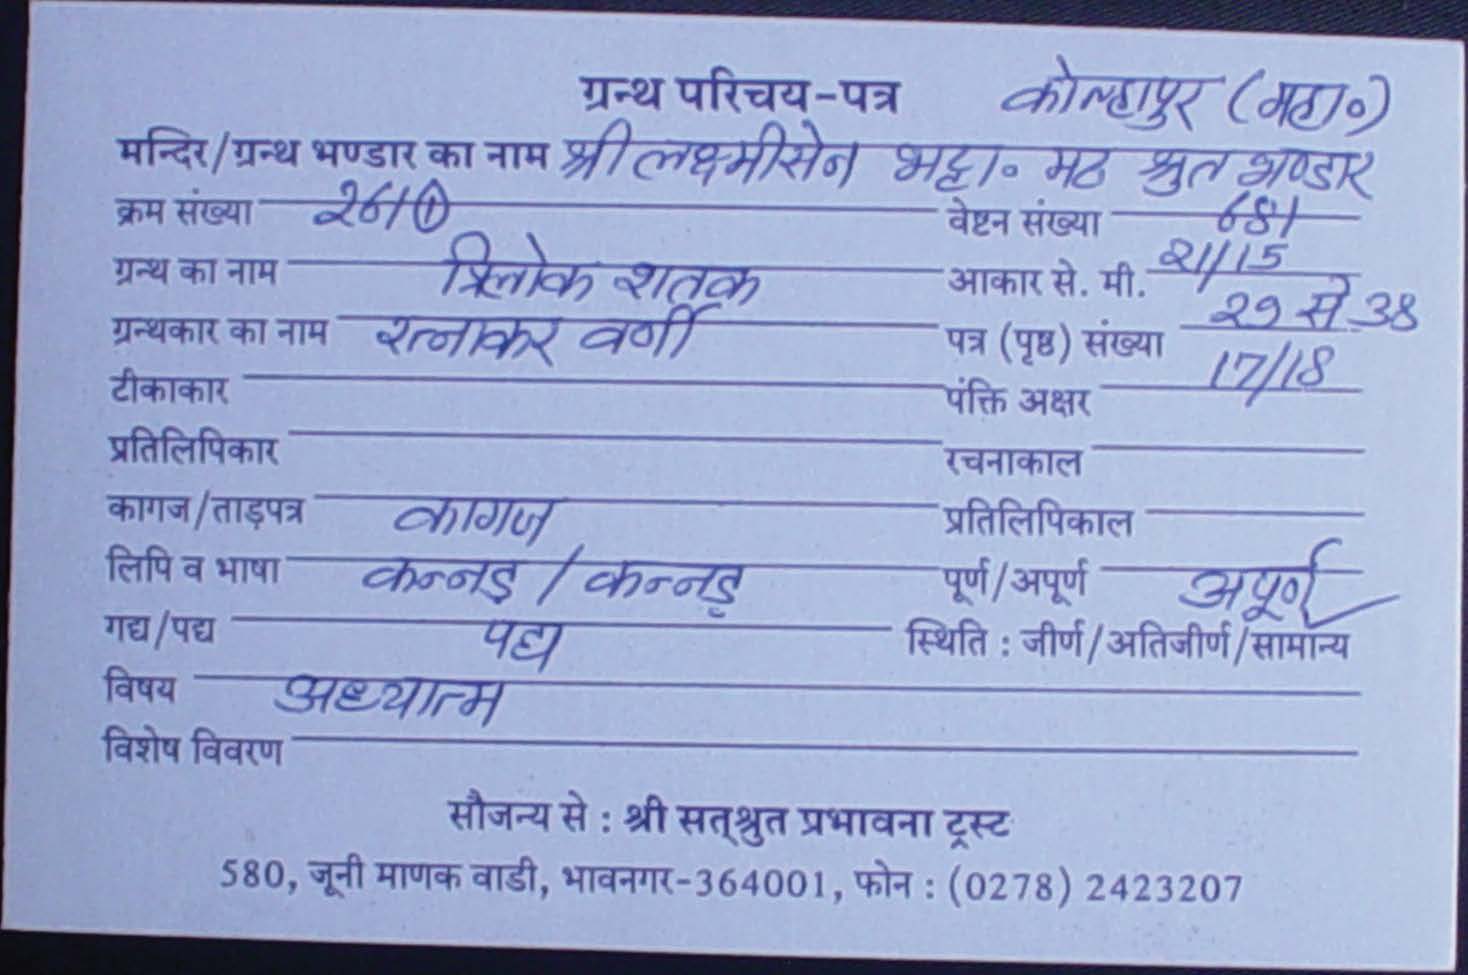 ग्रन्थ परिचय-पत्र कोल्हापुर (महा०)
मन्दिर/ग्रन्थ भण्डार का नाम श्री लक्ष्मीसेन भट्टा० मठ श्रुत भण्डार
क्रम संख्या 261① वेष्टन संख्या 681
ग्रन्थ का नाम त्रिलोक शतक आकार से. मी. 21/15
ग्रन्थकार का नाम रत्नाकर वर्णी पत्र (पृष्ठ) संख्या 29 से 38
टीकाकार पंक्ति अक्षर 17/18
प्रतिलिपिकार रचनाकाल
कागज/ताड़पत्र कागज प्रतिलिपिकाल
लिपि व भाषा कन्नड़ / कन्नड़ पूर्ण/अपूर्ण अपूर्ण
गद्य/पद्य पद्य स्थिति : जीर्ण/अतिजीर्ण/सामान्य
विषय अध्यात्म
विशेष विवरण
सौजन्य से : श्री सत्श्रुत प्रभावना ट्रस्ट
580, जूनी माणक वाडी, भावनगर-364001, फोन : (0278) 2423207